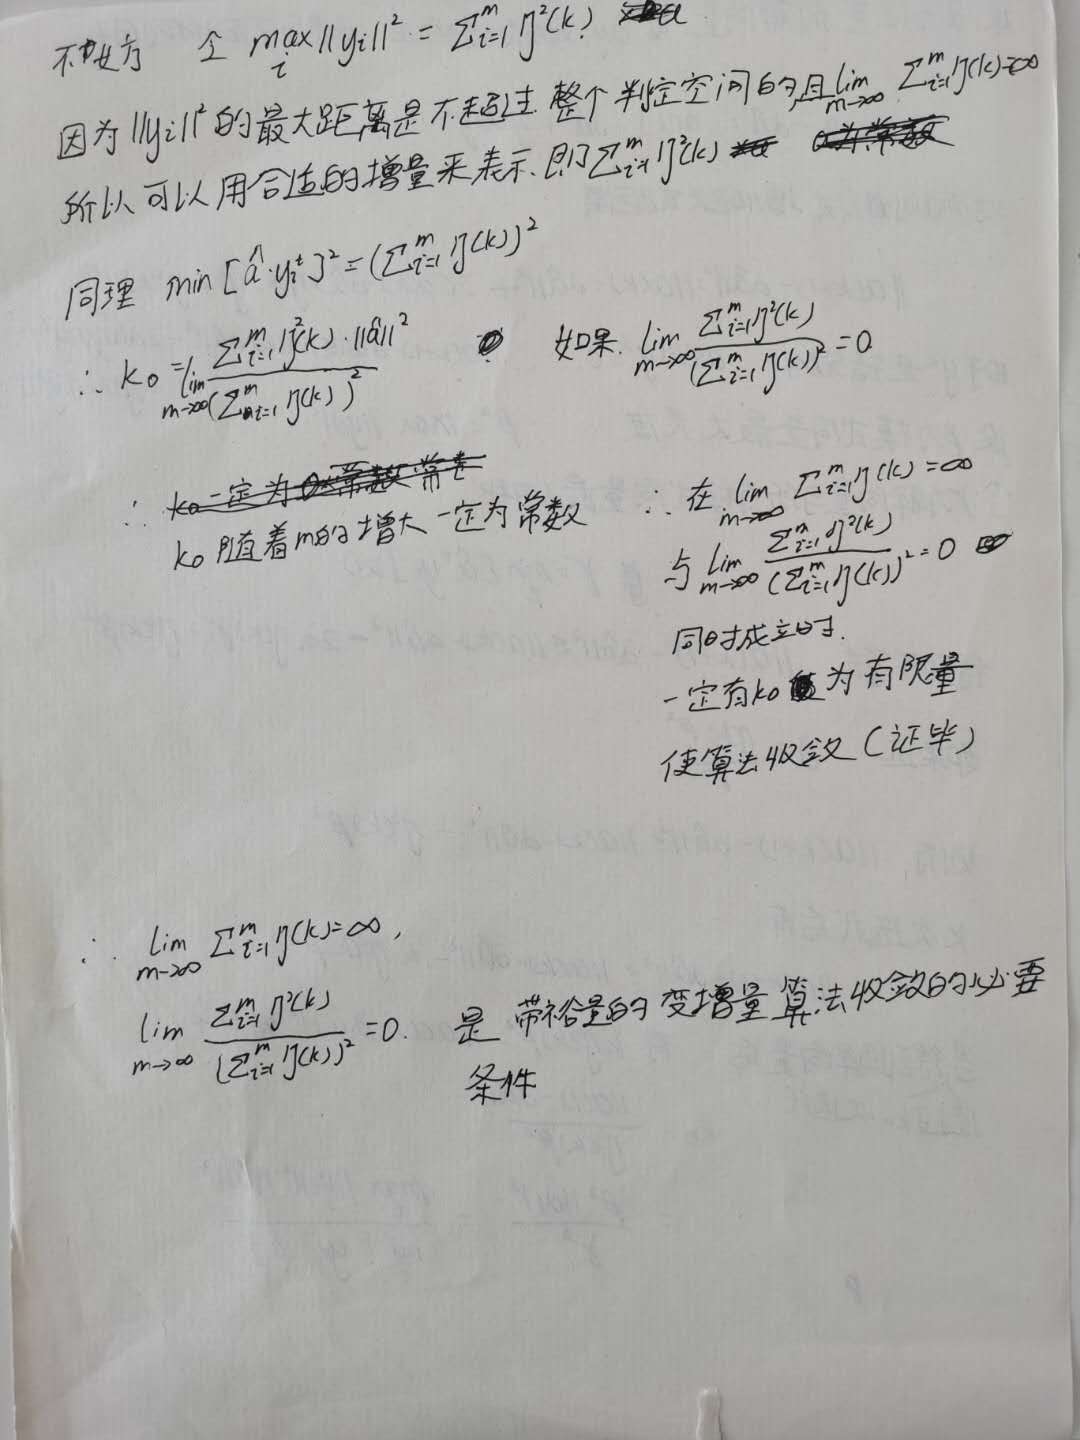 不妨 令 max_i ||y_i||² = Σ_{i=1}^m η²(k)
因为||y_i||²的最大距离是不超过整个判定空间的,且lim_{m→∞} Σ_{i=1}^m η(k)=∞
所以可以用合适的增量来表示.即Σ_{i=1}^m η²(k)
同理 min[â·y_i^t]²=(Σ_{i=1}^m η(k))²
∴ k₀ = lim_{m→∞} Σ_{i=1}^m η²(k)·||â||² / (Σ_{i=1}^m η(k))² 如果. lim_{m→∞} Σ_{i=1}^m η²(k) / (Σ_{i=1}^m η(k))² = 0
∴ k₀一定为
k₀随着m的增大一定为常数
∴ 在 lim_{m→∞} Σ_{i=1}^m η(k)=∞
与 lim_{m→∞} Σ_{i=1}^m η²(k) / (Σ_{i=1}^m η(k))² = 0
同时成立时.
一定有k₀为有限量
使算法收敛(证毕)
∴ lim_{m→∞} Σ_{i=1}^m η(k)=∞,
lim_{m→∞} Σ_{i=1}^m η²(k) / (Σ_{i=1}^m η(k))² = 0. 是 带裕量的变增量算法收敛的必要
条件